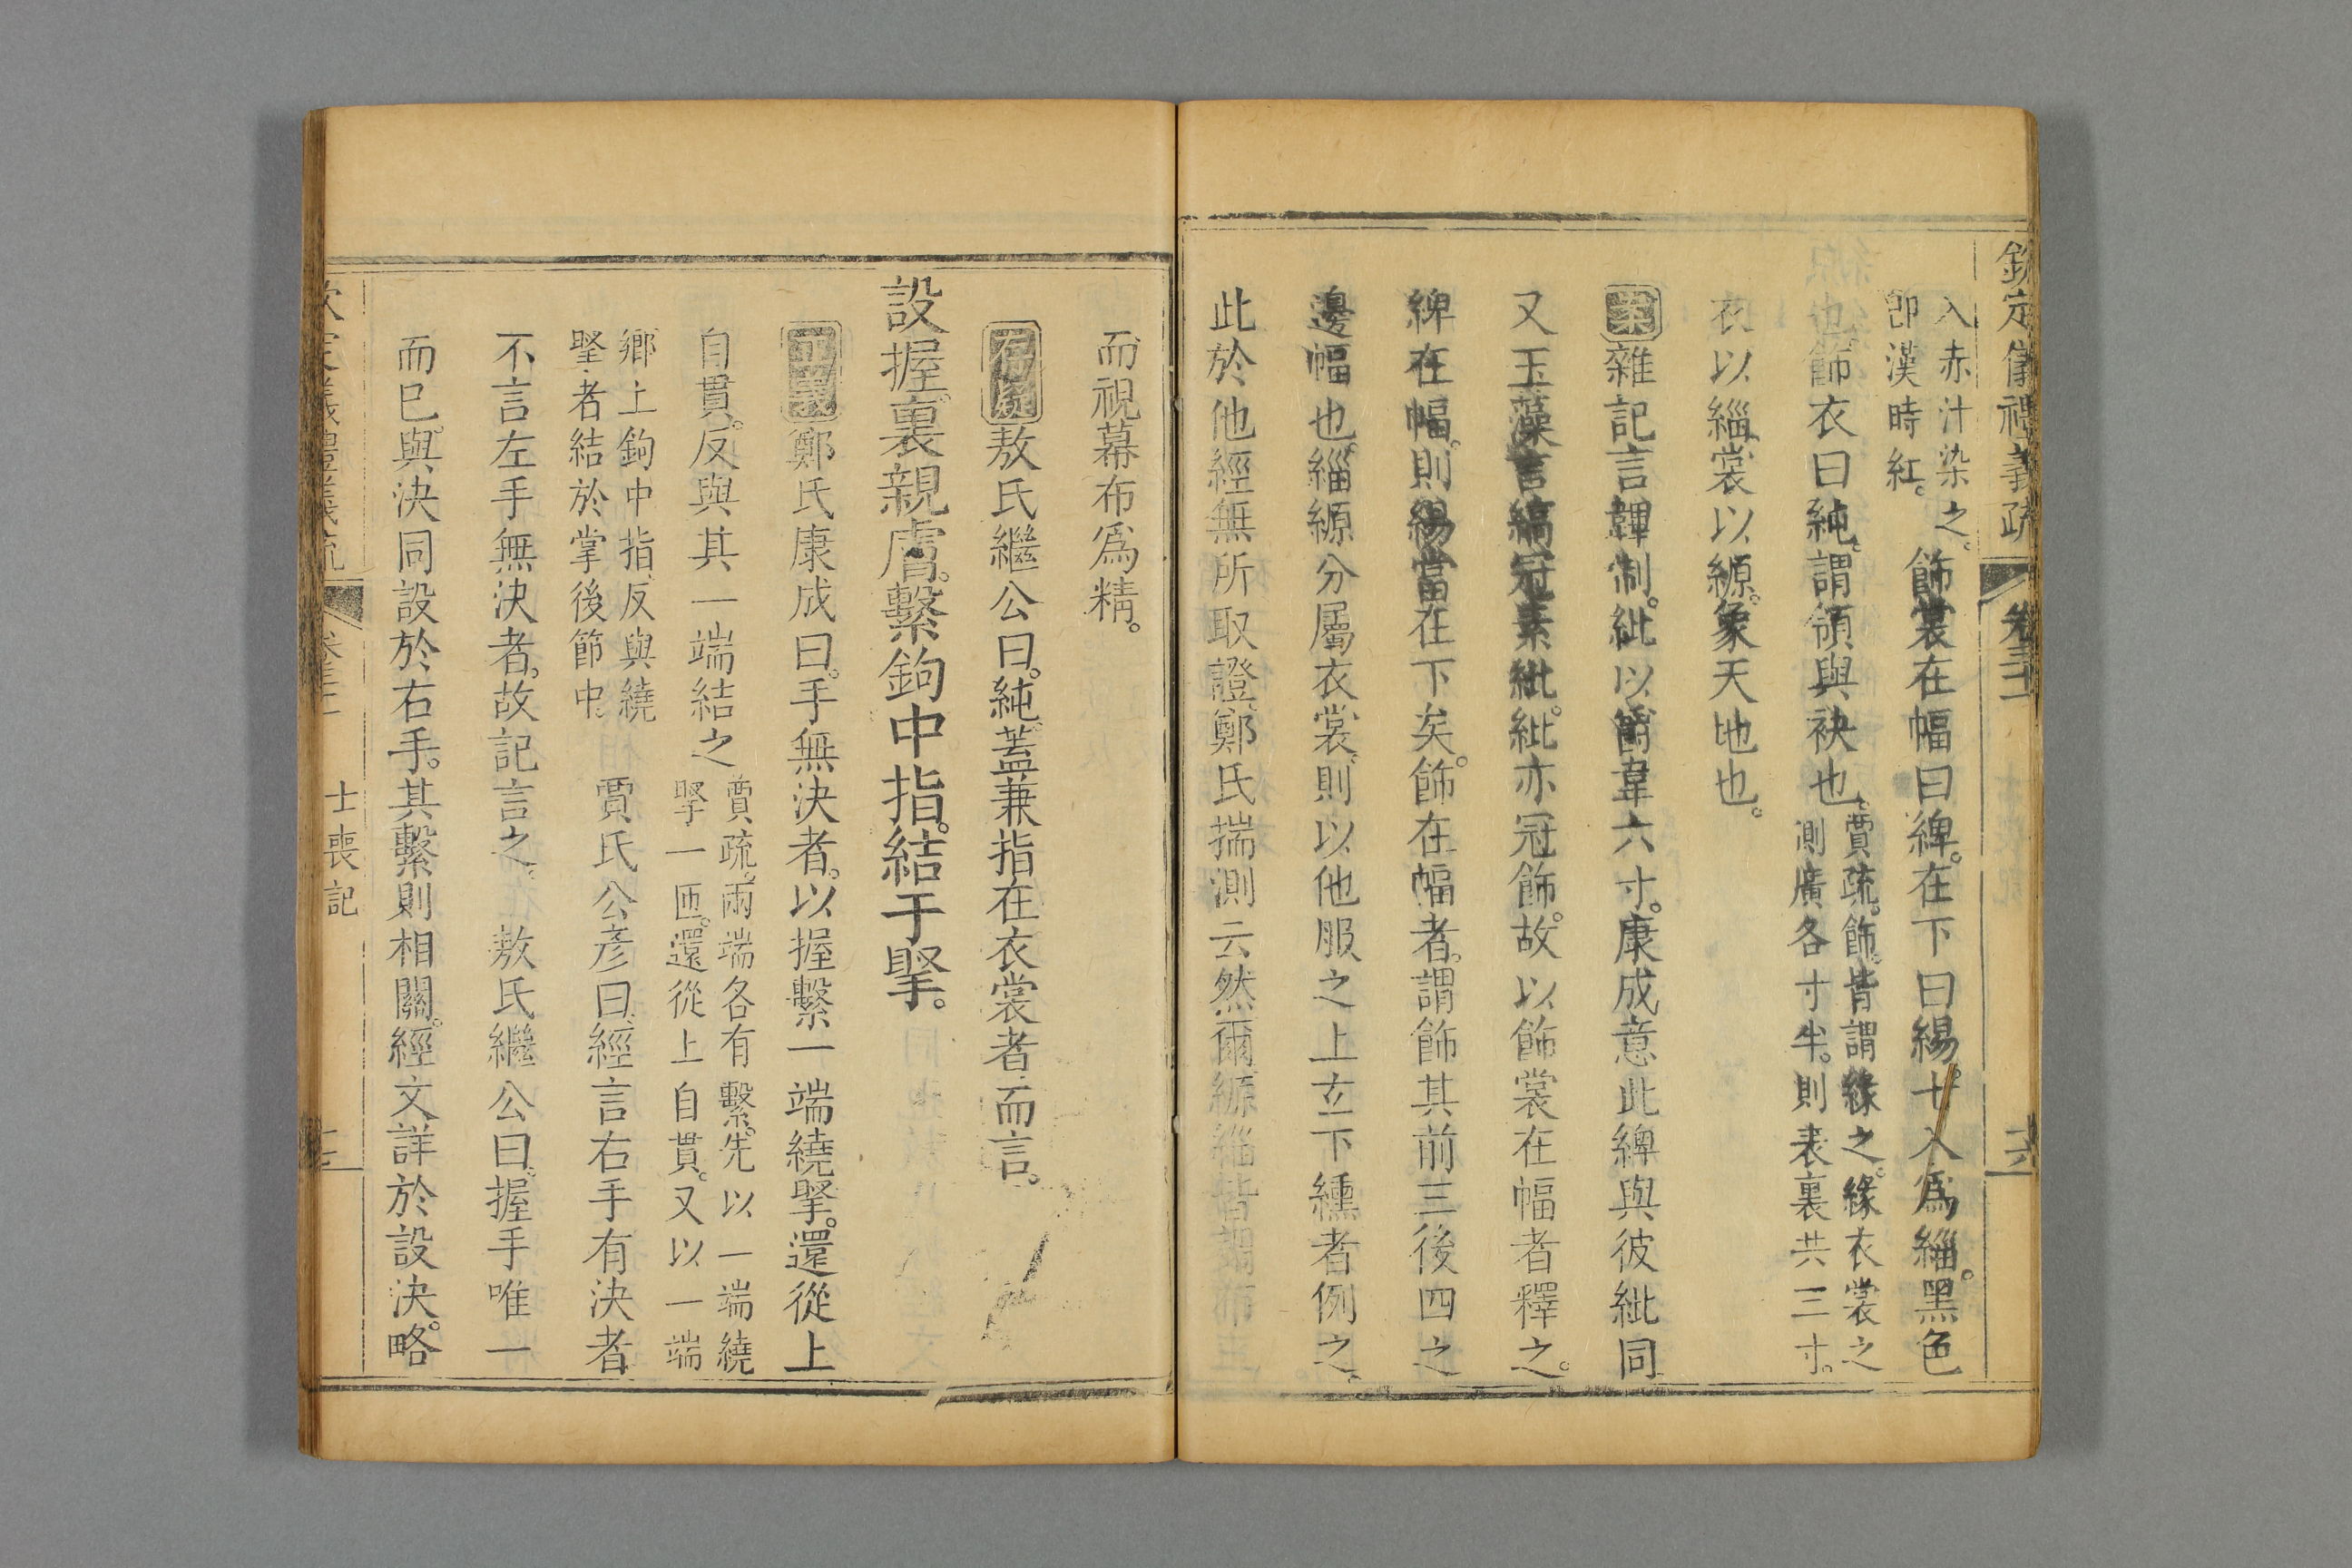 欽定儀禮義疏 卷三十一 六
入赤汁染之。
即漢時紅。
飾裳在幅曰綼。在下曰緆。七入爲緇。黑色
也。飾衣曰純。謂領與袂也。
賈疏。飾。皆謂緣之。緣衣裳之
側廣各寸半。則表裏共三寸。
衣以緇。裳以縓。象天地也。
案雜記言韠制。紕以爵韋六寸。康成意此綼與彼紕同
又玉藻言縞冠素紕。紕亦冠飾。故以飾裳在幅者釋之。
綼在幅。則緆當在下矣。飾在幅者。謂飾其前三後四之
邊幅也。緇縓分屬衣裳、則以他服之上玄下纁者例之、
此於他經無所取證、鄭氏揣測云然爾縓緇皆謂
而視幕布爲精。
存疑敖氏繼公曰。純。蓋兼指在衣裳者而言。
設握。裏親膚。繫鉤中指。結于掔。
正義鄭氏康成曰。手無決者。以握繫一端繞掔。還從上
自貫。反與其一端結之
賈疏。兩端各有繫。先以一端繞
掔一匝。還從上自貫。又以一端
鄉上鉤中指、反與繞
掔者結於掌後節中。
賈氏公彥曰、經言右手有決者
不言左手無決者。故記言之。
敖氏繼公曰。握手唯一
而已。與決同設於右手。其繫則相關。經文詳於設決。略
士喪記